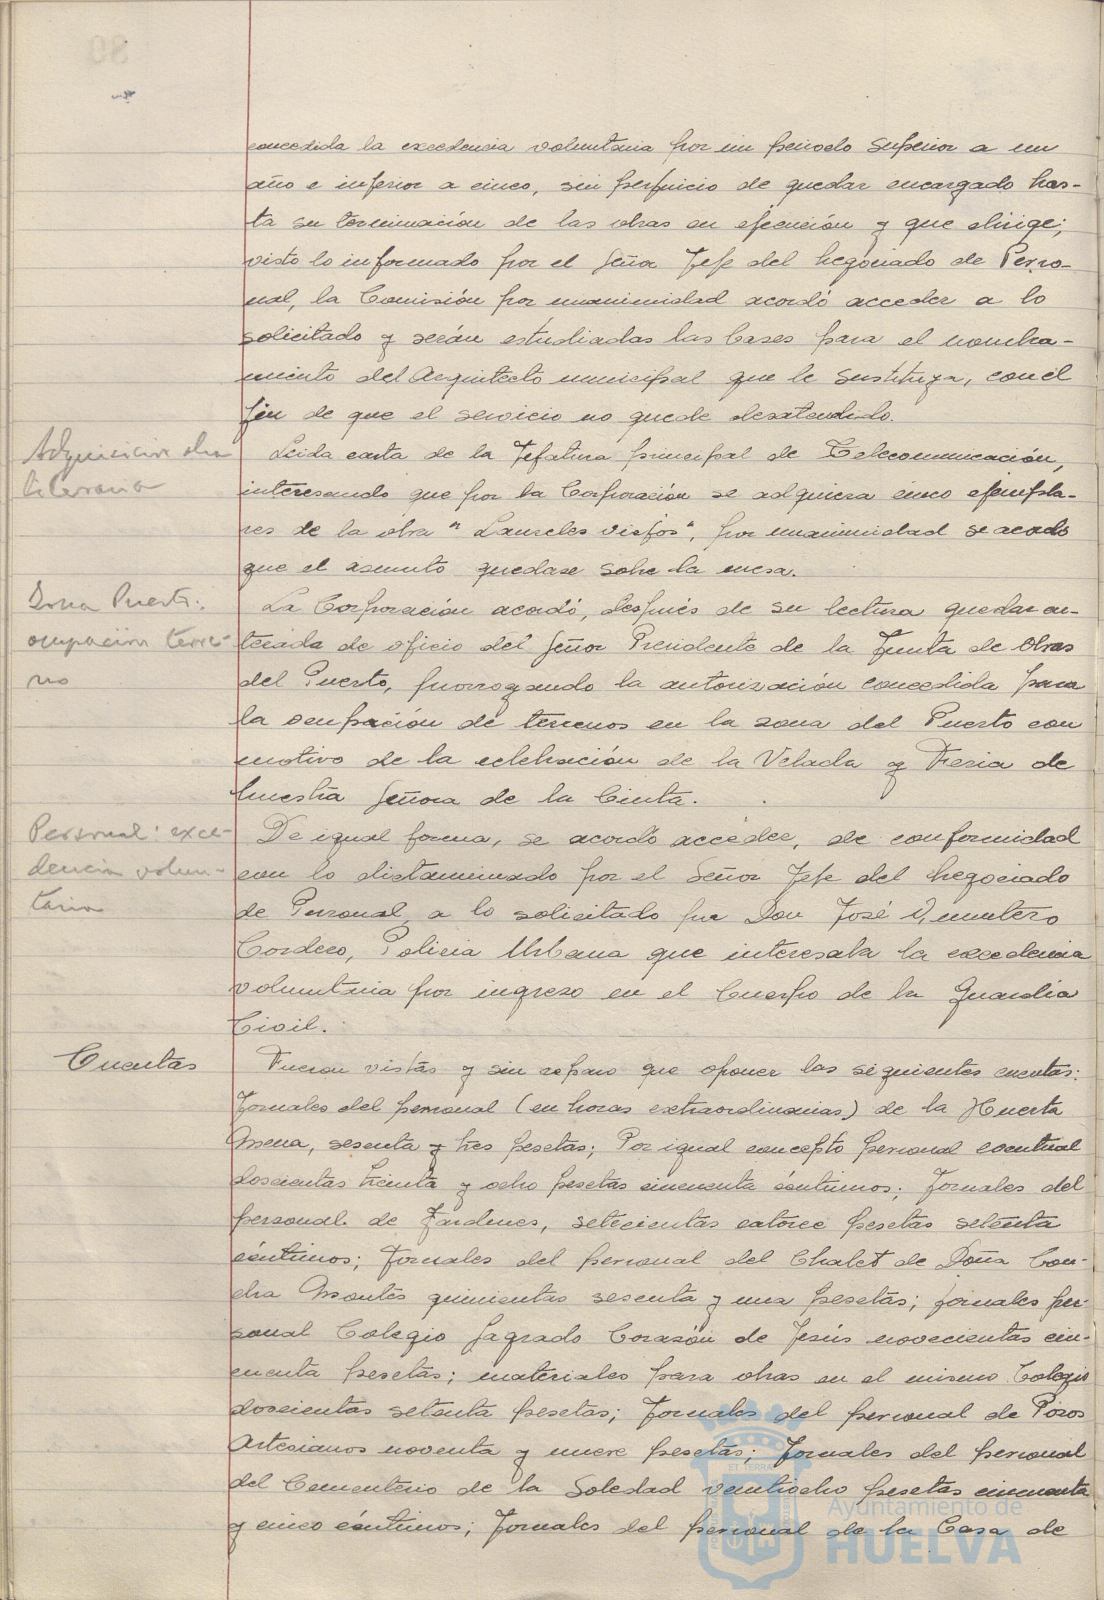 concedida la excedencia voluntaria por un periodo superior a un
año e inferior a cinco, sin perjuicio de quedar encargado has-
ta su terminación de las obras en ejecución y que dirige;
visto lo informado por el Señor Jefe del Negociado de Perso-
nal, la Comisión por unanimidad acordó acceder a lo
solicitado y serán estudiadas las bases para el nombra-
miento del Arquitecto municipal que le sustituya, con el
fin de que el servicio no quede desatendido.
Adquisicion obra
literaria
Leida carta de la Jefatura principal de Telecomunicación,
interesando que por la Corporación se adquiera cinco ejempla-
res de la obra "Laureles viejos", por unanimidad se acordo
que el asunto quedase sobre la mesa.
Zona Puerto:
ocupación terre-
no
La Corporación acordó, después de su lectura quedar en-
terada de oficio del Señor Presidente de la Junta de Obras
del Puerto, prorrogando la autorización concedida para
la ocupación de terrenos en la zona del Puerto con
motivo de la celebración de la Velada y Feria de
Nuestra Señora de la Cinta.
Personal: exce-
dencia volun-
taria
De igual forma, se acordó acceder, de conformidad
con lo dictaminado por el Señor Jefe del Negociado
de Personal, a lo solicitado por Don José
Cordero, Policia Urbana que interesaba la excedencia
voluntaria por ingreso en el Cuerpo de la Guardia
Civil.
Cuentas
Fueron vistas y sin reparo que oponer las siguientes cuentas:
Jornales del personal (en horas extraordinarias) de la Huerta
Mena, sesenta y tres pesetas; Por igual concepto personal eventual
doscientas treinta y ocho pesetas cincuenta céntimos; Jornales del
personal de Jardines, setecientas catorce pesetas setenta
céntimos; Jornales del personal del Chalet de Doña Con-
cha Montes quinientas sesenta y una pesetas; jornales per-
sonal Colegio Sagrado Corazón de Jesús novecientas cin-
cuenta pesetas; materiales para obras en el mismo Colegio
doscientas setenta pesetas; Jornales del personal de Pozos
Artesianos noventa y nueve pesetas; Jornales del personal
del Cementerio de la Soledad veintiocho pesetas cincuenta
y cinco céntimos; Jornales del personal de la Casa de
Ayuntamiento de
HUELVA